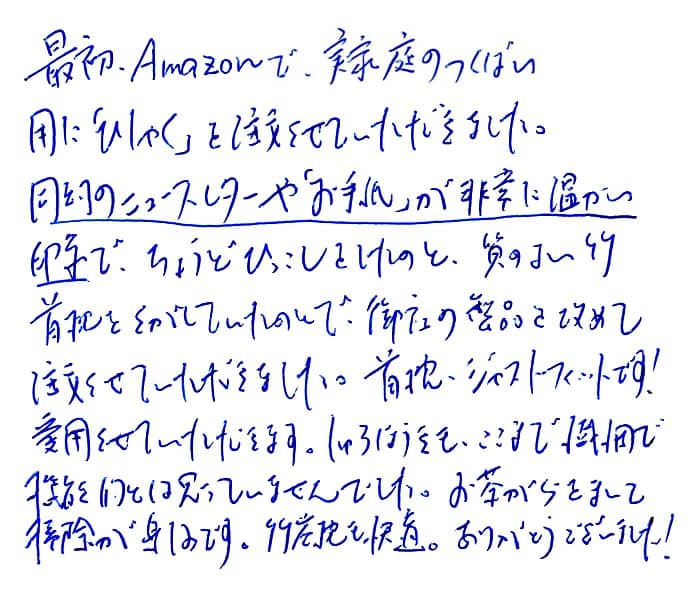 最初、Amazonで、実家庭のつくばい
用に「ひしゃく」を注文させていただきました。
同封のニュースレターや「お手紙」が非常に温かい
印象で、ちょうどひっこしをしたのと、質のよい竹
首枕をさがしていたので、御社の製品を改めて
注文させていただきました。首枕、ジャストフィットです!
愛用させていただきます。しゅろほうきも、ここまで繊細で
機能的とは思っていませんでした。お茶がらをまいて
掃除が楽しみです。竹首枕も快適。ありがとうございました!